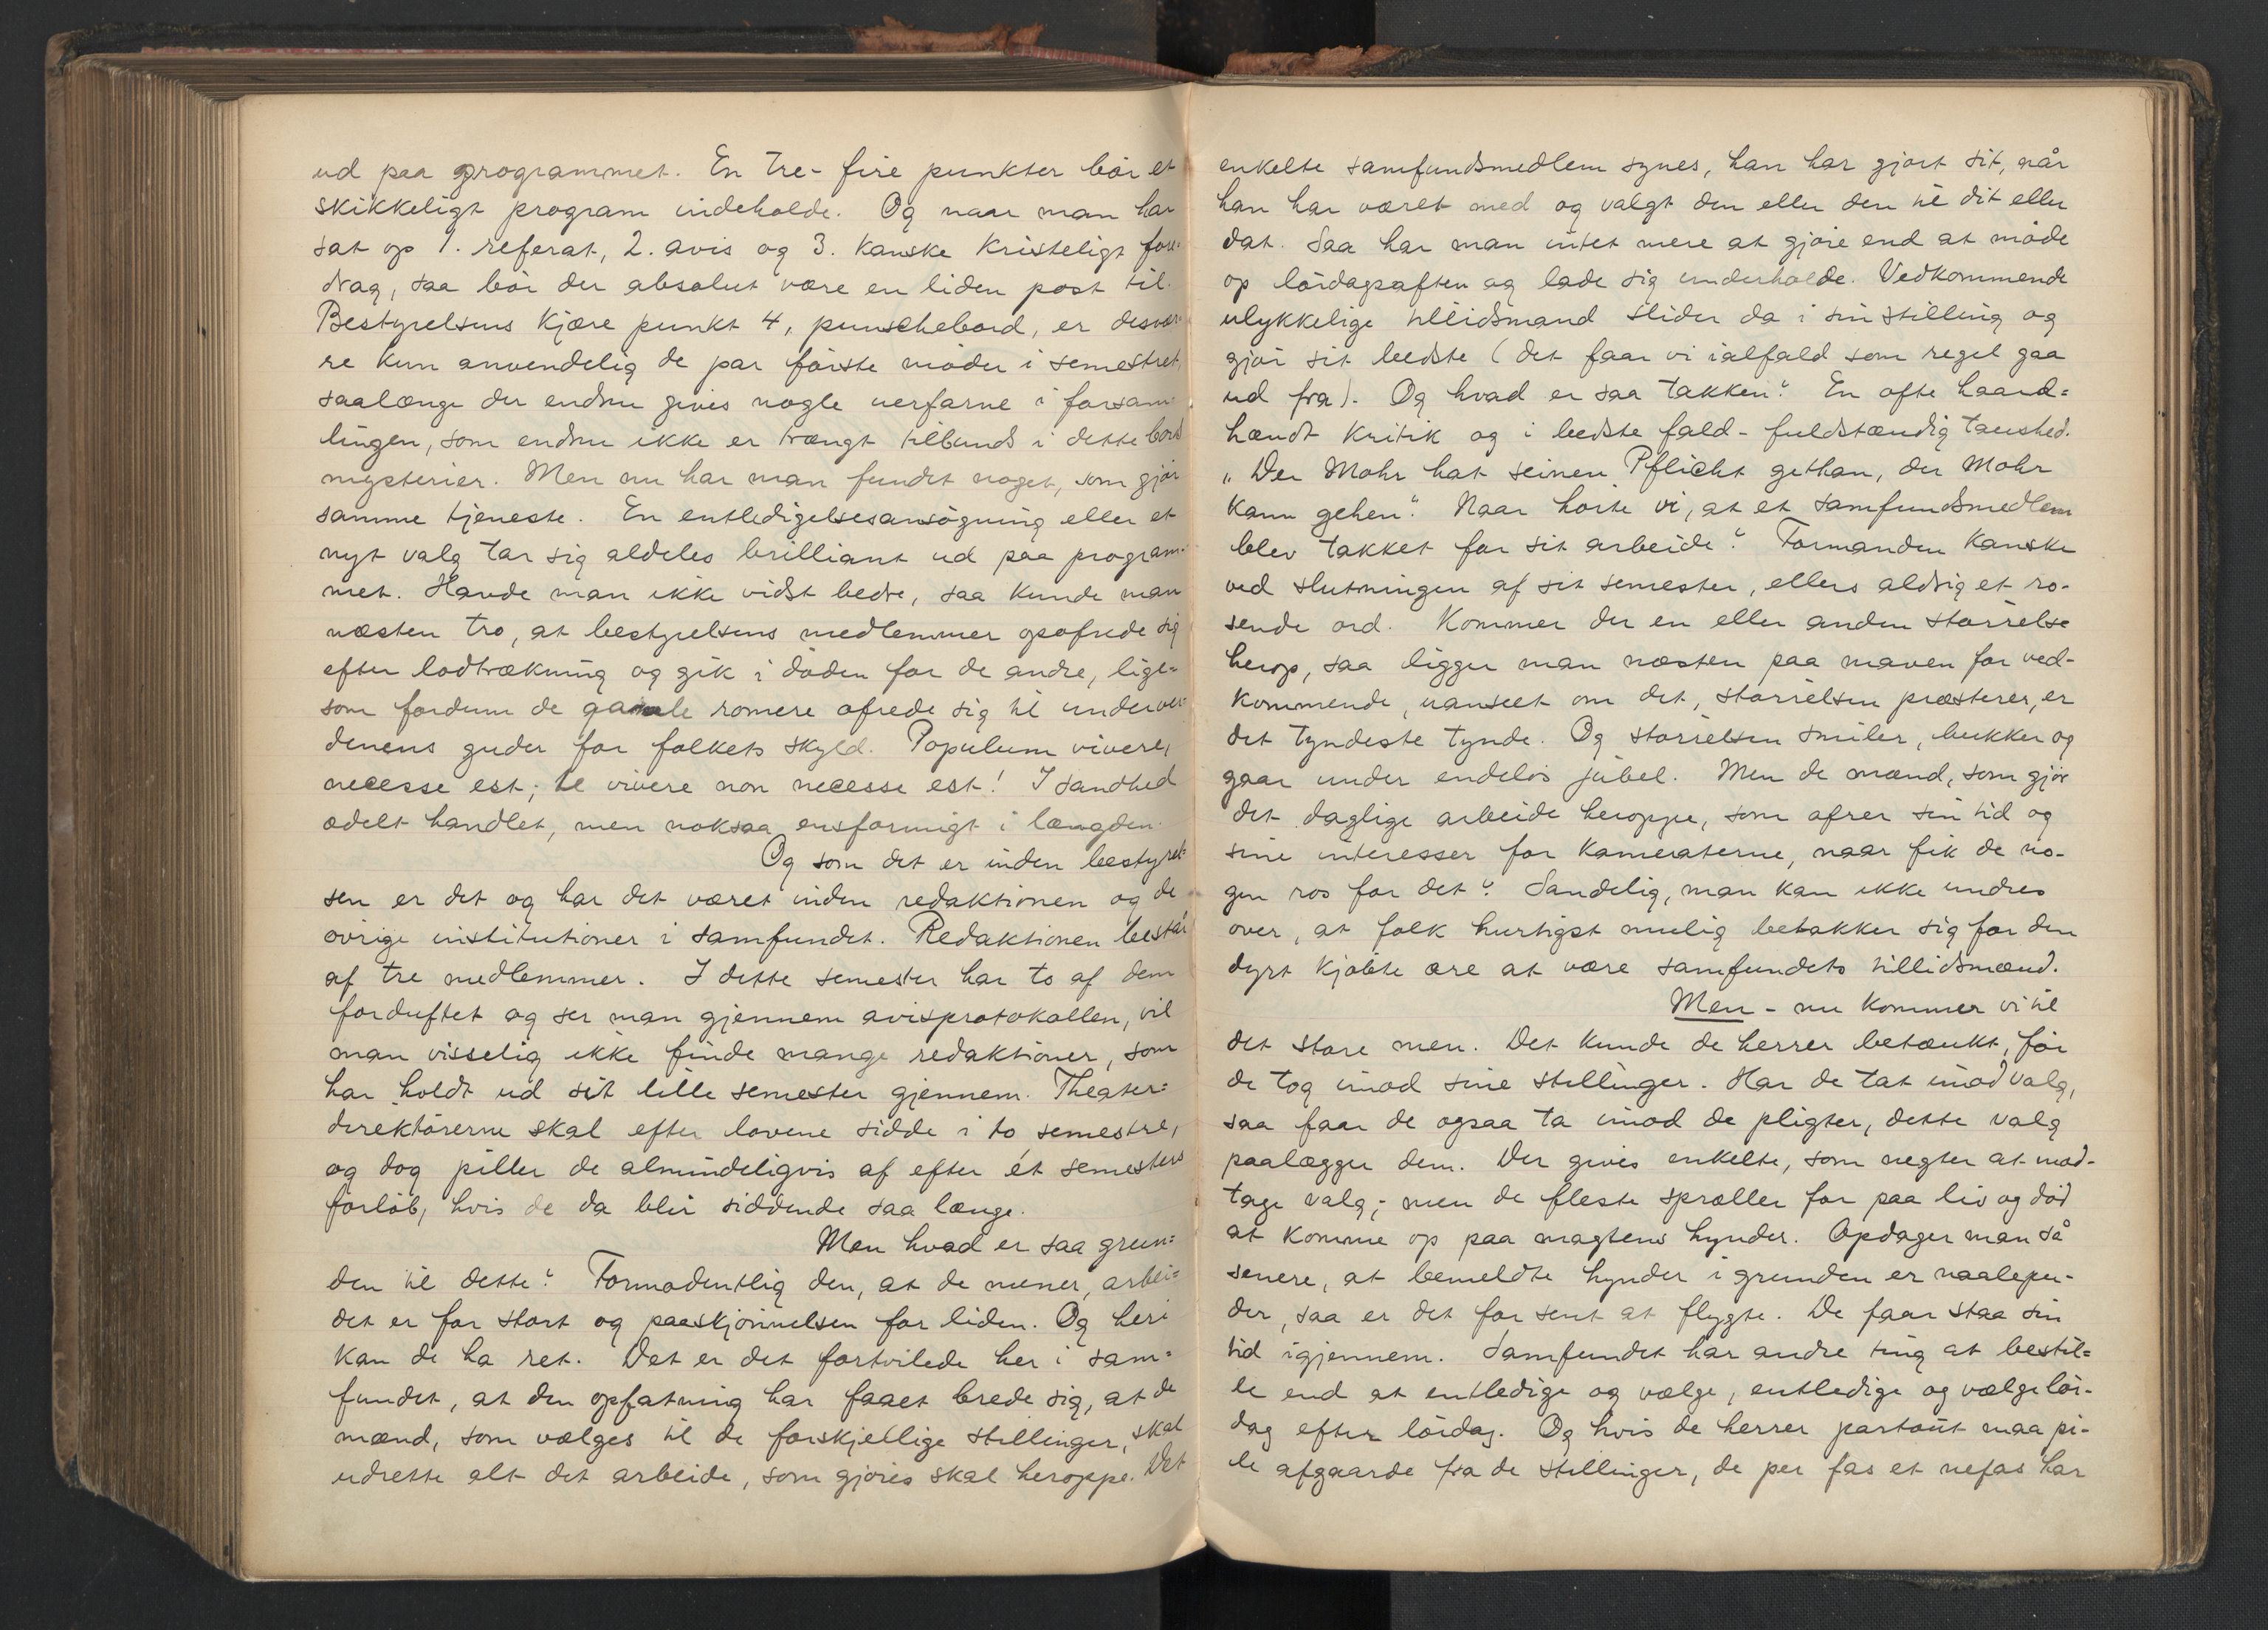 ud paa programmet. En tre- fire punkter bör et
skikkeligt program indeholde. Og naar man har
sat op 1. referat, 2. avis og 3. kanske kristeligt fore-
drag, saa bör der absolut være en liden post til.
Bestyrelsens kjære punkt 4, punschebord, er desvær-
re kun anvendelig de par förste möder i semestret,
saalænge der endnu gives nogle uerfarne i forsam-
lingen, som endnu ikke er trængt tilbunds i dette bords
mysterier. Men nu har man fundet noget, som gjör
samme tjeneste. En entledigelsesansögning eller et
nyt valg tar sig aldeles brilliant ud paa program-
met. Havde man ikke vidst bedre, saa kunde man
næsten tro, at bestyrelsens medlemmer opofrede sig
efter lodtrækning og gik i döden for de andre, lige-
som fordum de gamle romere ofrede sig til underver-
denens guder for folkets skyld. Populum vivere,
necesse est; te vivere non necesse est! I sandhed
ædelt handlet, men noksaa ensformigt i længden.
Og som det er inden bestyrel-
sen er det og har det været inden redaktionen og de
övrige institutioner i samfundet. Redaktionen består
af tre medlemmer. I dette semester har to af dem
forduftet og ser man gjennem avisprotokollen, vil
man visselig ikke finde mange redaktioner, som
har holdt ud sit lille semester gjennem. Theater-
direktörerne skal efter lovene sidde i to semestre,
og dog piller de almindeligvis af efter ét semesters
forlöb, hvis de da blir siddende saa længe.
Men hvad er saa grun-
den til dette? Formodentlig den, at de mener, arbei-
det er for stort og paaskjönnelsen for liden. Og heri
kan de ha ret. Det er det fortvilede her i sam-
fundet, at den opfatning har faaet brede sig, at de
mænd, som vælges til de forskjellige stillinger, skal
udrette alt det arbeide, som gjöres skal heroppe. Det
enkelte samfundsmedlem synes, han har gjort sit, når
han har været med og valgt den eller den til dit eller
dat. Saa har man intet mere at gjöre end at möde
op lördagsaften og lade sig underholde. Vedkommende
ulykkelige tillidsmand slider da i sin stilling og
gjör sit bedste (det faar vi ialfald som regel gaa
ud fra). Og hvad er saa takken? En ofte haard-
hændt kritik og i bedste fald - fuldstændig taushed.
"Der Mohr hat seinen Pflicht gethan, der Mohr
kann gehen". Naar hörte vi, at et samfundsmedlem
blev takket for sit arbeide? Formanden kanske
ved slutningen af sit semester, ellers aldrig et ro-
sende ord. Kommer der en eller anden störrelse
herop, saa ligger man næsten paa maven for ved-
kommende, uanseet om det, störrelsen præsterer, er
det tyndeste tynde. Og störrelsen smiler, bukker og
gaar under endelös jubel. Men de mænd, som gjör
det daglige arbeide heroppe, som ofrer sin tid og
sine interesser for kameraterne, naar fik de no-
gen ros for det? Sandelig, man kan ikke undres
over, at folk hurtigst mulig betakker sig for den
dyrt kjöbte ære at være samfundets tillidsmænd.
Men - nu kommer vi til
det store men. Det kunde de herrer betænkt, för
de tog imod sine stillinger. Har de tat imod valg,
saa faar de ogsaa ta imod de pligter, dette valg
paalægger dem. Der gives enkelte, som negter at mod-
tage valg; men de fleste spræller for paa liv og död
at komme op paa magtens hynder. Opdager man så
senere, at bemeldte hynder i grunden er naalepu-
der, saa er det for sent at flygte. De faar staa sin
tid igjennem. Samfundet har andre ting at bestil-
le end at entledige og vælge, entledige og vælge lör-
dag efter lördag. Og hvis de herrer partout maa pi-
le afgaarde fra de stillinger, de per fas et nefas har